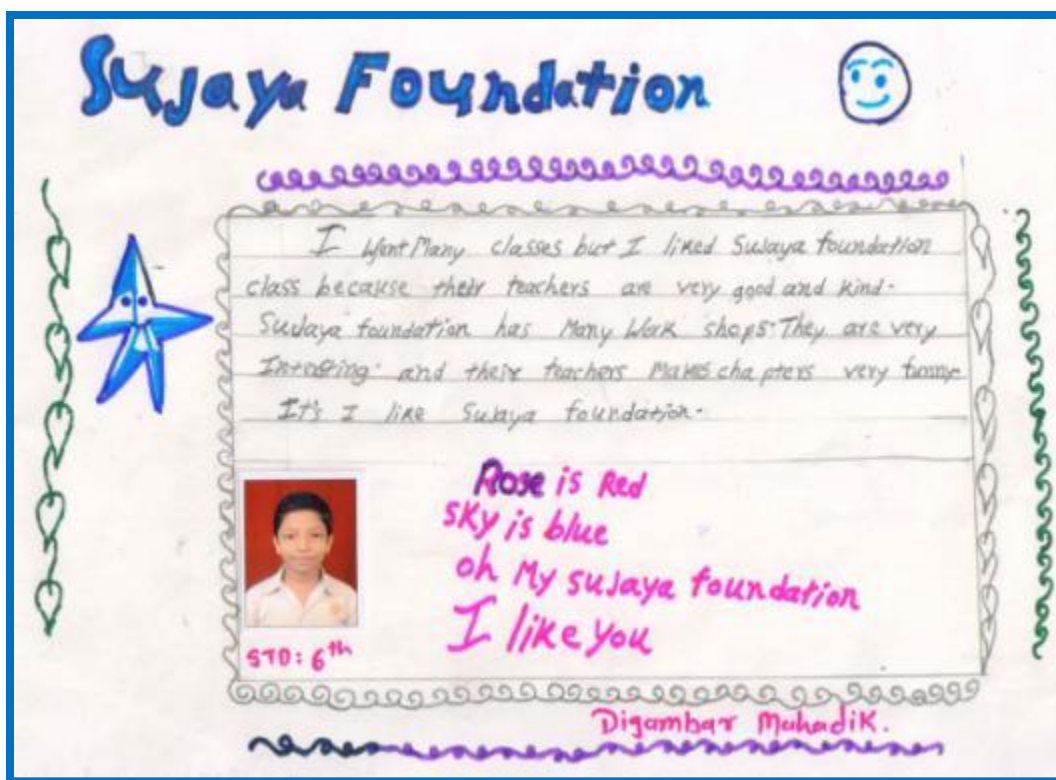 Sujaya Foundation
I Want Many classes but I liked Sujaya foundation
class because their teachers are very good and kind.
Sujaya foundation has Many Work shops. They are very
Intresting. and their teachers Makes chapters very funny
It's I like Sujaya foundation.
Rose is Red
Sky is blue
oh My sujaya foundation
I like you
STD: 6th
Digambar Mahadik.